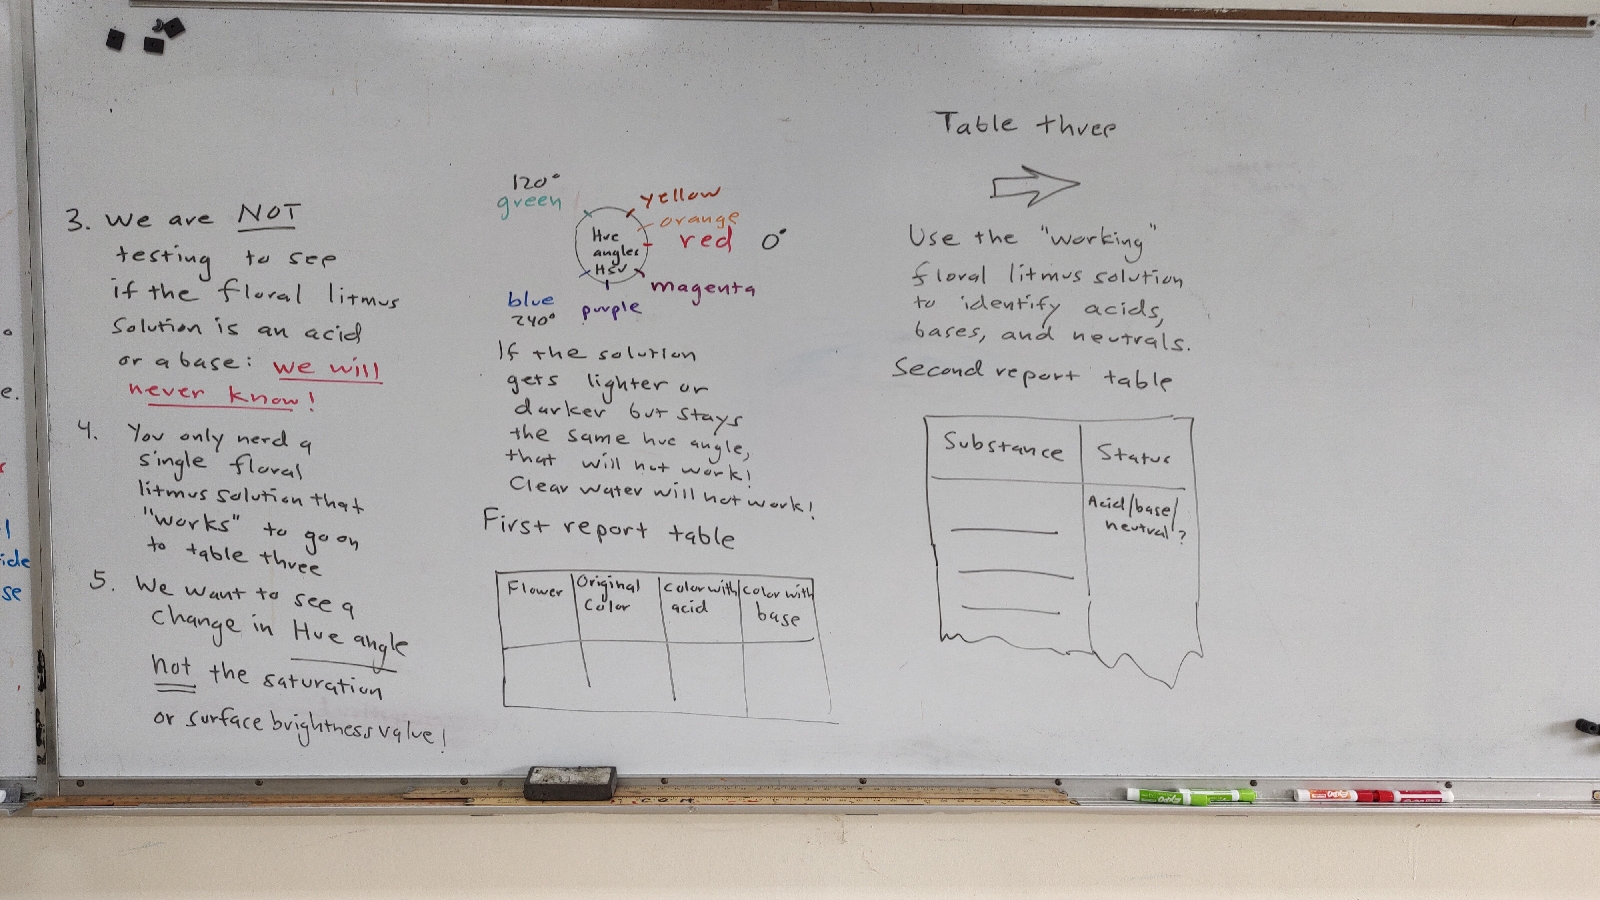 3. We are NOT
testing to see
if the floral litmus
solution is an acid
or a base: we will
never know!
4. You only need a
single floral
litmus solution that
"works" to go on
to table three
5. We want to see a
change in Hue angle
not the saturation
or surface brightness value!
120°
green
yellow
orange
red 0°
Hue
angles
HSV
magenta
blue
240°
purple
If the solution
gets lighter or
darker but stays
the same hue angle,
that will not work!
Clear water will not work!
First report table
Flower
Original
Color
Color with
acid
Color with
base
Table three
Use the "working"
floral litmus solution
to identify acids,
bases, and neutrals.
Second report table
Substance
Status
Acid/base/
neutral?
e.
ide
se